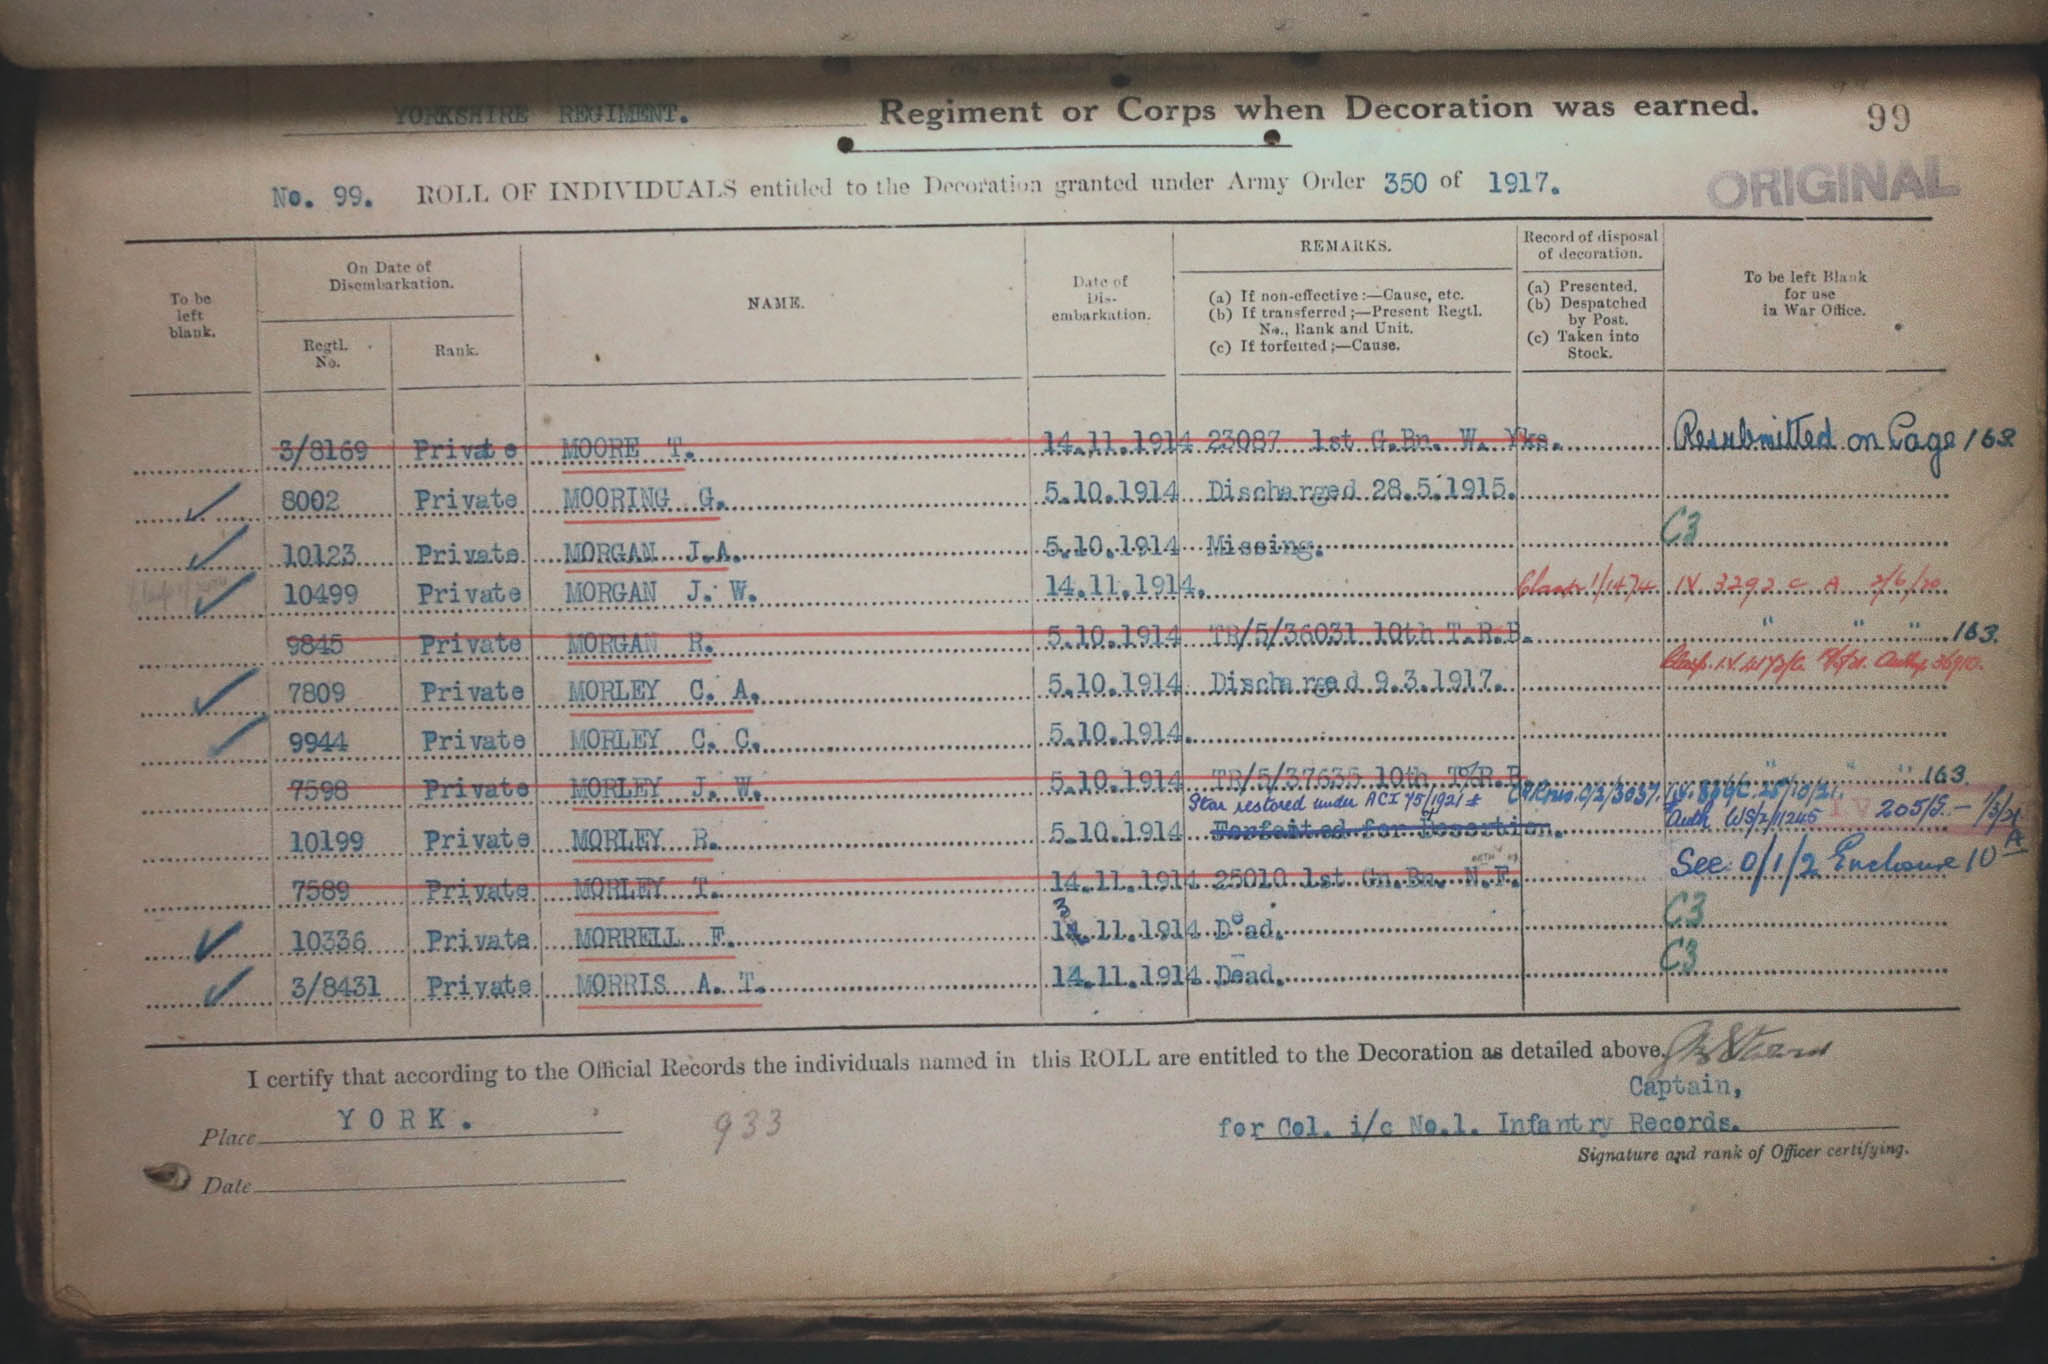 YORKSHIRE REGIMENT. Regiment or Corps when Decoration was earned. 99
No. 99. ROLL OF INDIVIDUALS entitled to the Decoration granted under Army Order 350 of 1917. ORIGINAL
To be left blank.
On Date of Disembarkation.
Regtl. No.
Rank.
NAME.
Date of Dis-embarkation.
REMARKS.
(a) If non-effective:—Cause, etc.
(b) If transferred;—Present Regtl. No., Rank and Unit.
(c) If forfeited;—Cause.
Record of disposal of decoration.
(a) Presented.
(b) Despatched by Post.
(c) Taken into Stock.
To be left Blank for use in War Office.
3/8169 Private MOORE T. 14.11.1914 23087 1st G.Bn. W. Yks. Resubmitted on Page 163
8002 Private MOORING G. 5.10.1914 Discharged 28.5.1915.
10123 Private MORGAN J.A. 5.10.1914 Missing. C3
10499 Private MORGAN J. W. 14.11.1914. Clasp 1/1474 IV. 3292 C A 2/6/20
9845 Private MORGAN R. 5.10.1914 TR/5/36031 10th T.R.B. " " " 163.
7809 Private MORLEY C. A. 5.10.1914 Discharged 9.3.1917. Clasp. I.V.
9944 Private MORLEY C. C. 5.10.1914.
7598 Private MORLEY J. W. 5.10.1914 TR/5/37635 10th T.R.B. " " " 163
Star restored under ACI 75/1921
10199 Private MORLEY R. 5.10.1914 Forfeited for Desertion. Auth WS/2/11245 205/S.
7589 Private MORLEY T. 14.11.1914 25010 1st Gn.Bn. N.F. See 0/1/2 Enclosure 10 A
10336 Private MORRELL F. 13.11.1914 Dead. C3
3/8431 Private MORRIS A. T. 14.11.1914 Dead. C3
I certify that according to the Official Records the individuals named in this ROLL are entitled to the Decoration as detailed above.
Captain,
Place YORK. 933 for Col. i/c No.1. Infantry Records.
Signature and rank of Officer certifying.
Date